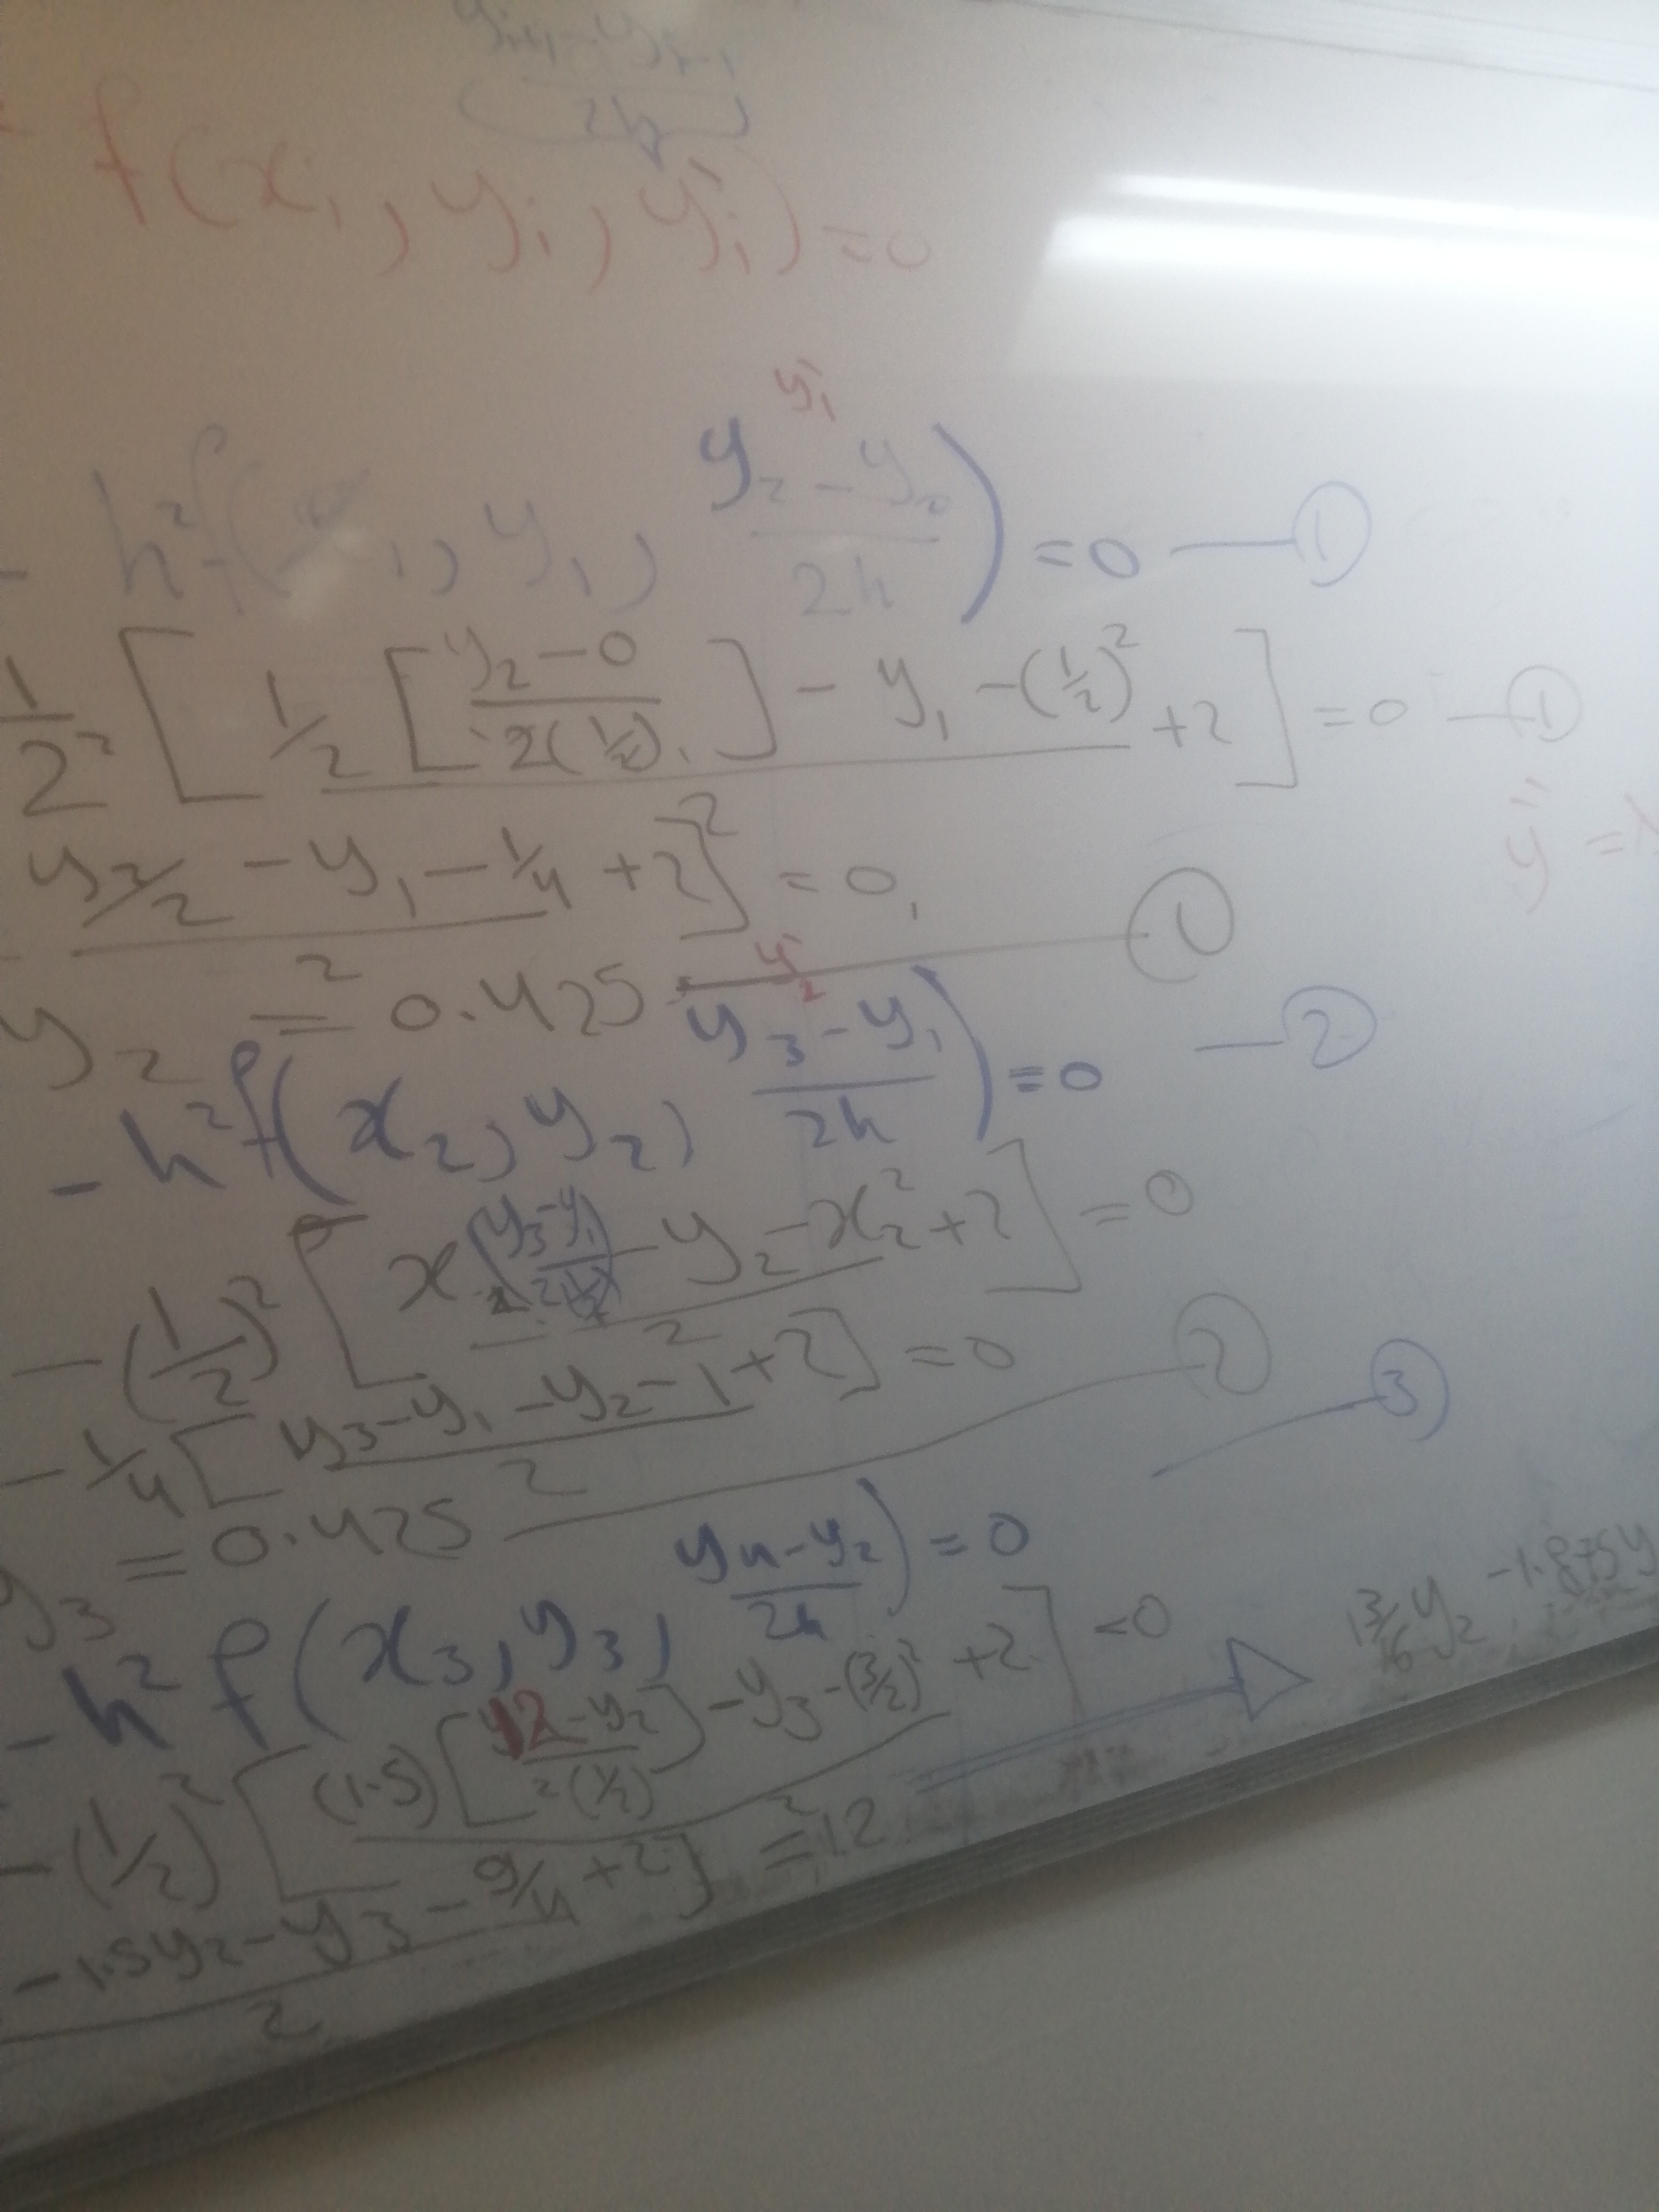 y_{i+1} - y_{i-1} / 2h
f(x_i, y_i, y'_i) = 0
y'_1
- h² f(x_1, y_1, (y_2 - y_0)/2h) = 0 — ①
1/2² [ 1/2 [ (y_2 - 0)/2(1/2) ] - y_1 - (1/2)² + 2 / 2 ] = 0 — ①
y'' =
y_2/2 - y_1 - 1/4 + 2 / 2 ] = 0
y_2 = 0.425 — ①
y'_2
- h² f(x_2, y_2, (y_3 - y_1)/2h) = 0 — ②
- (1/2)² [ x_2 ((y_3 - y_1)/2(1/2)) - y_2 - x_2² + 2 / 2 ] = 0
- 1/4 [ y_3 - y_1 - y_2 - 1 + 2 / 2 ] = 0
y_3 = 0.425 — ②
- h² f(x_3, y_3, (y_4 - y_2)/2h) = 0 — ③
- (1/2)² [ (1.5) [ (12 - y_2)/2(1/2) ] - y_3 - (3/2)² + 2 / 2 ] = 0
1 3/16 y_2 - 1.875 y
- 1.5y_2 - y_3 - 9/4 + 2 / 2 ] = 12